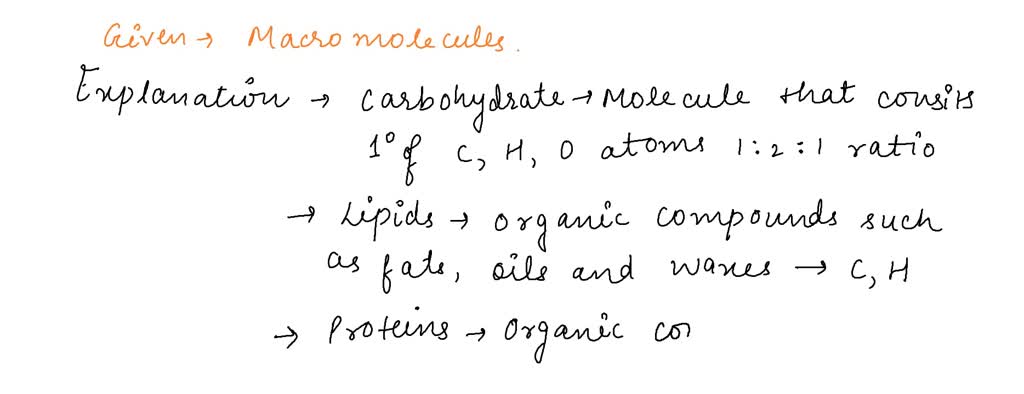 Given → Macromolecules.
Explanation → Carbohydrate → Molecule that consits
1° of C, H, O atoms 1:2:1 ratio
→ Lipids → organic compounds such
as fats, oils and waxes → C, H
→ Proteins → Organic co